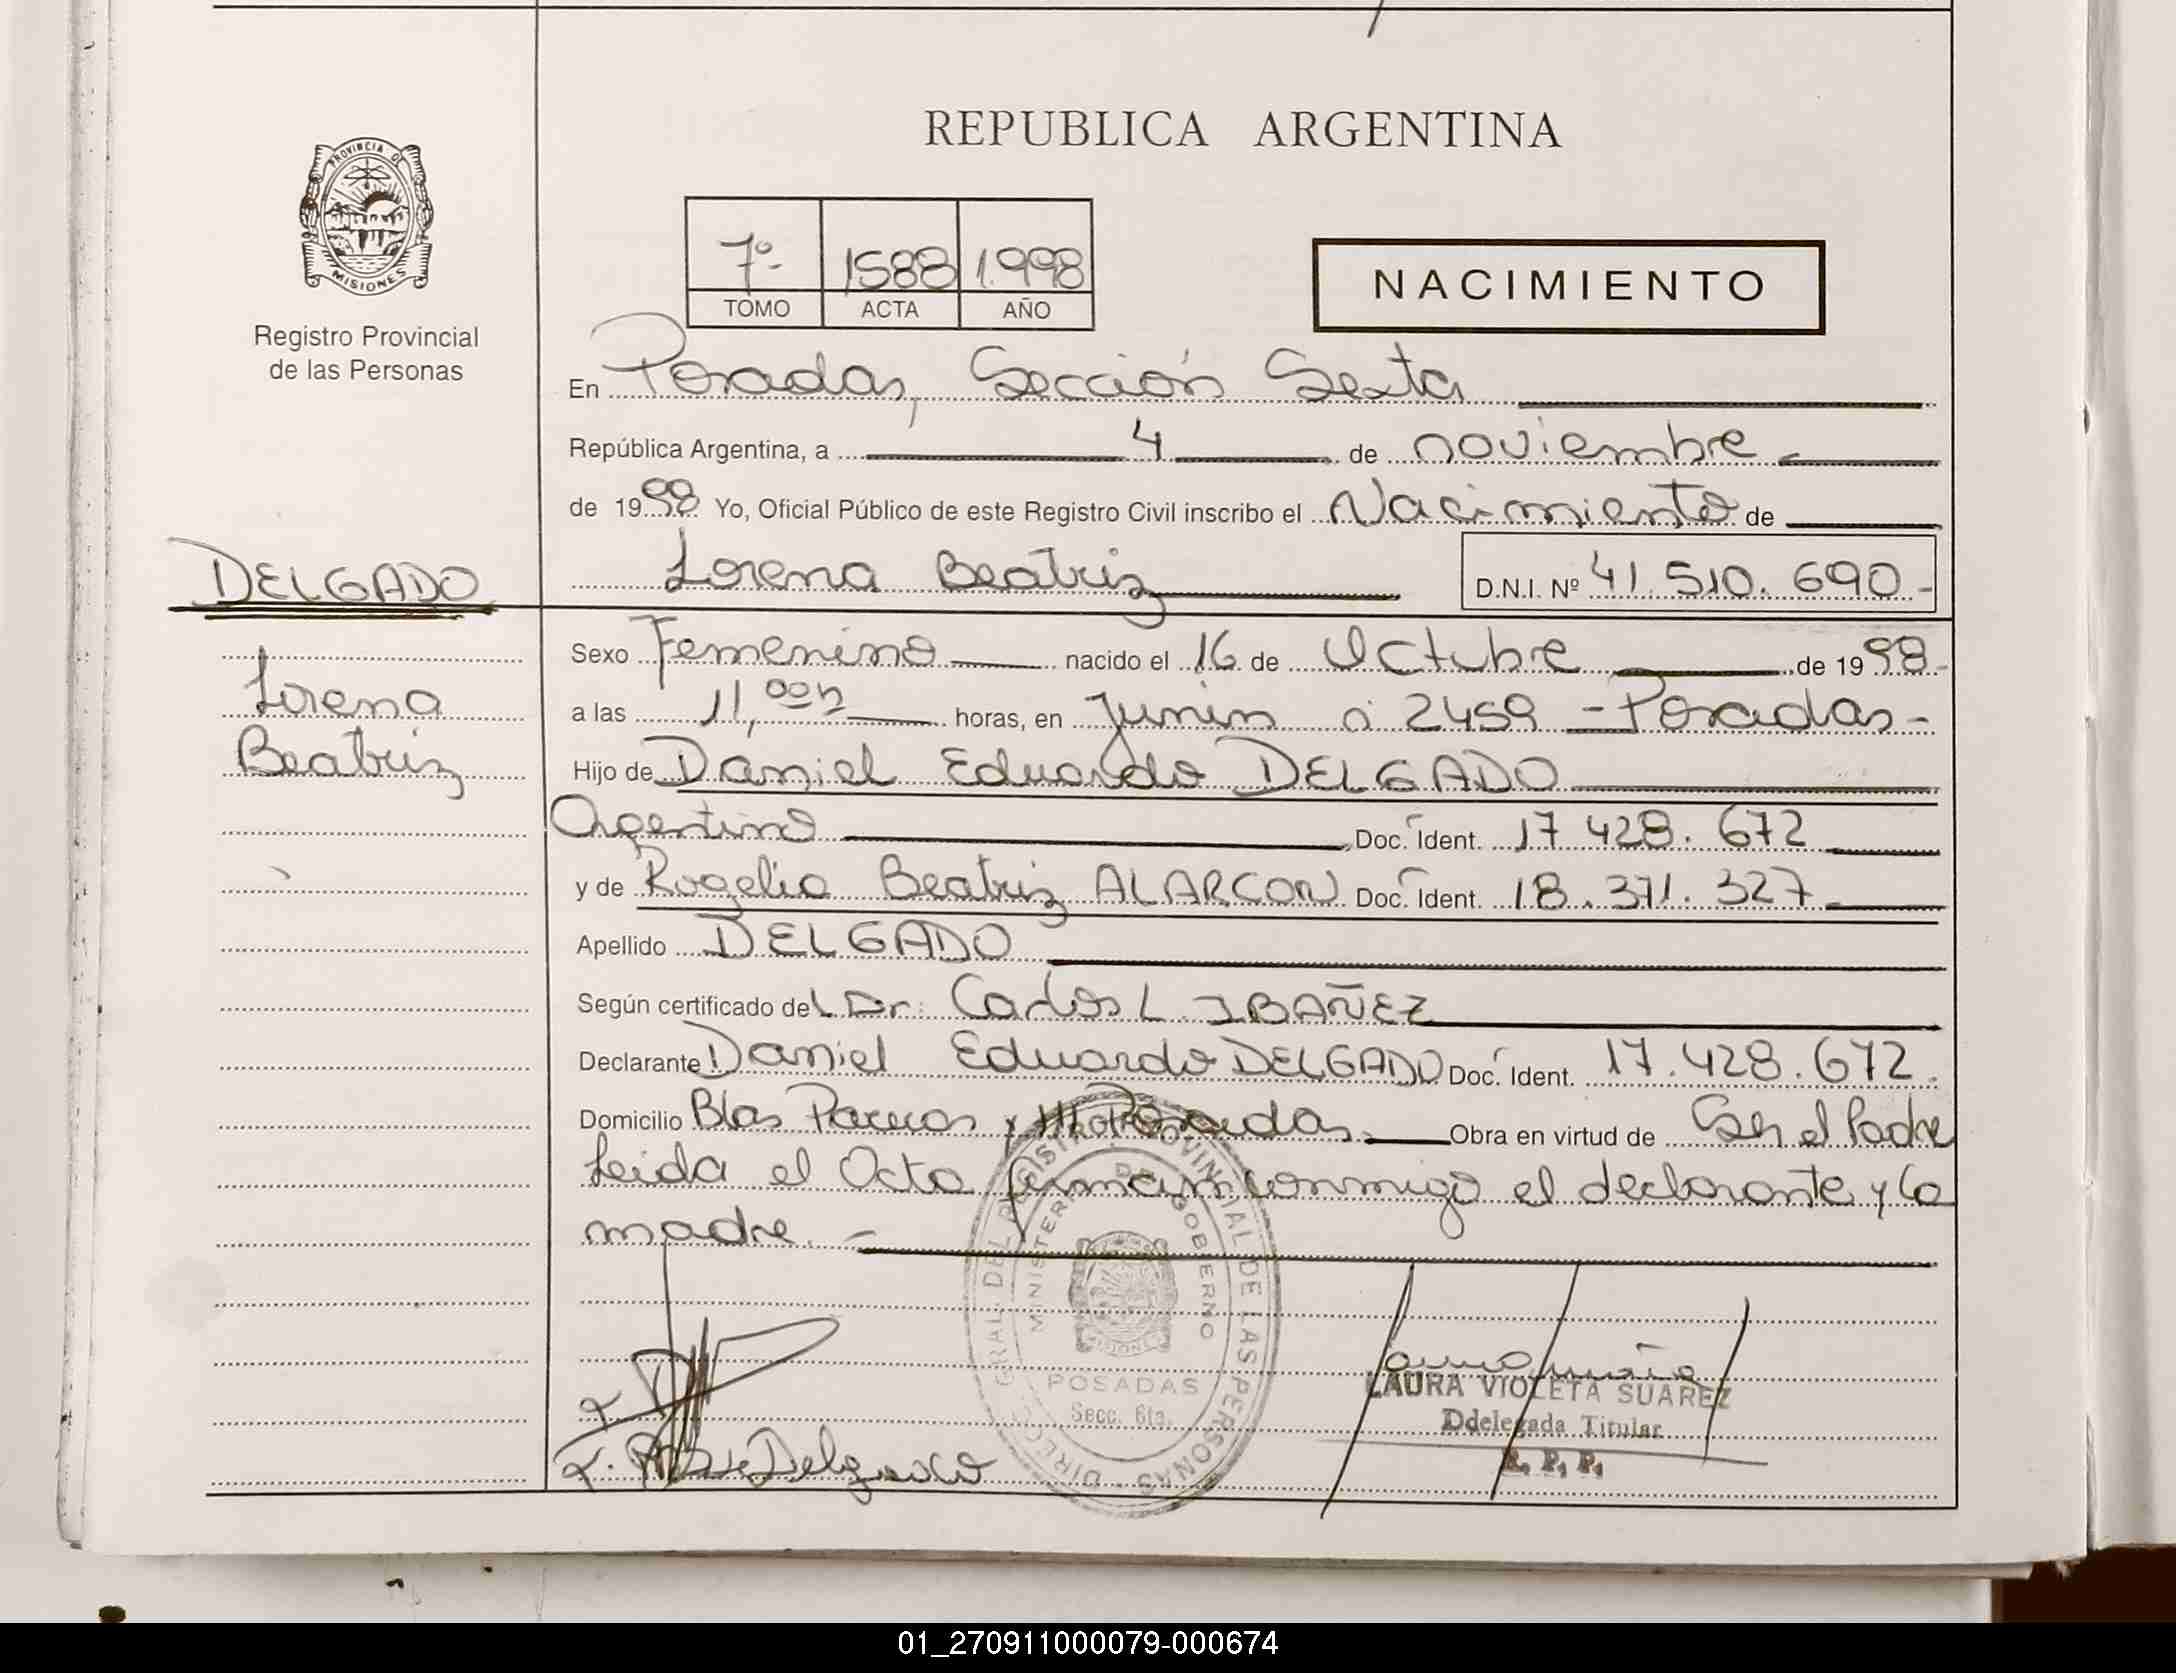 REPUBLICA ARGENTINA
PROVINCIA DE
MISIONES
Registro Provincial
de las Personas
7º- 1588 1.998
TOMO ACTA AÑO
NACIMIENTO
En Posadas, Sección Sexta
República Argentina, a 4 de noviembre
de 1998 Yo, Oficial Público de este Registro Civil inscribo el Nacimiento de
DELGADO
Lorena Beatriz D.N.I. Nº 41.510.690-
Lorena
Beatriz
Sexo Femenino nacido el 16 de Octubre de 1998-
a las 11,00h horas, en Junin a 2459 - Posadas-
Hijo de Daniel Eduardo DELGADO
Argentino Doc. Ident. 17 428.672
y de Rogelia Beatriz ALARCON Doc. Ident. 18.371.327
Apellido DELGADO
Según certificado del Dr. Carlos L. IBAÑEZ
Declarante Daniel Eduardo DELGADO Doc. Ident. 17.428.672.
Domicilio Blas Parera y Posadas. Obra en virtud de Ser el Padre
Leida el Acta firman conmigo el declarante y la
madre. -
DIRECC. GRAL. DEL REGISTRO PROVINCIAL DE LAS PERSONAS
MINISTERIO DE GOBIERNO
POSADAS
Secc. 6ta.
LAURA VIOLETA SUAREZ
Ddelegada Titular
R. P. P.
Delgado
01_270911000079-000674